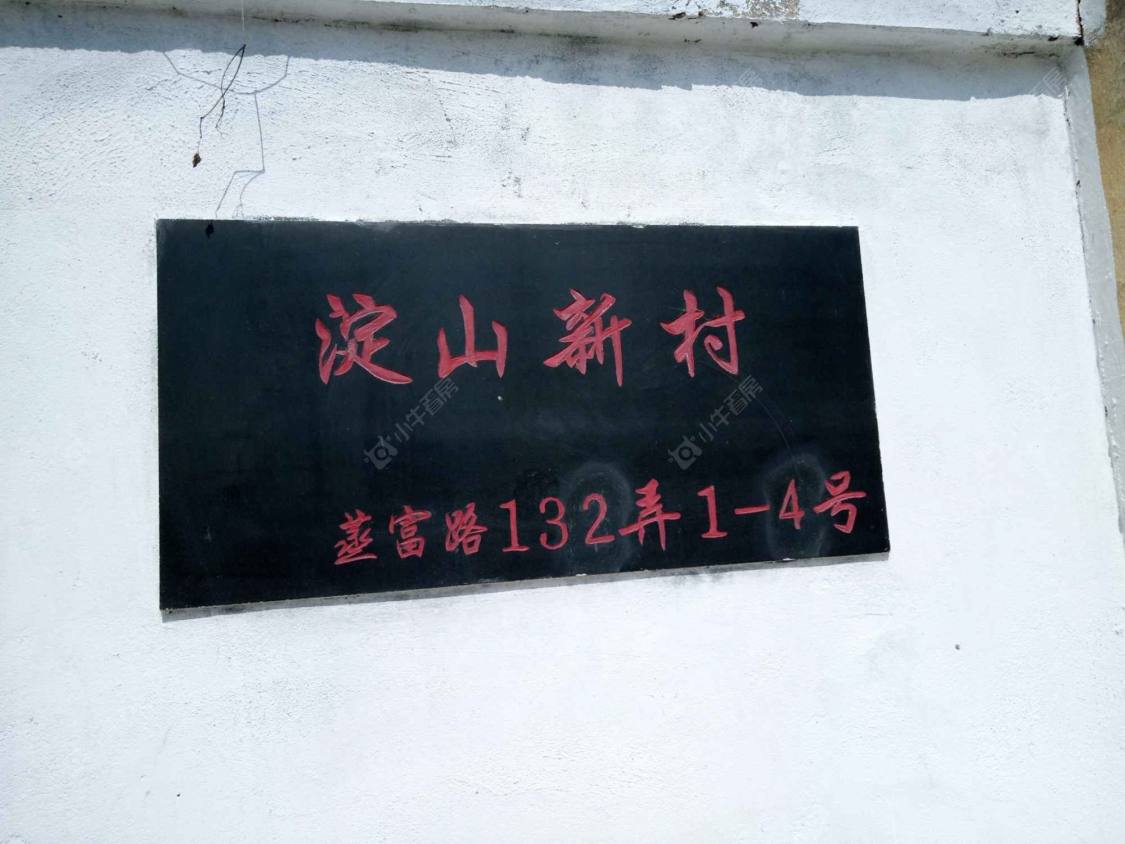 淀山新村
蒸富路132弄1-4号
小牛看房
小牛看房